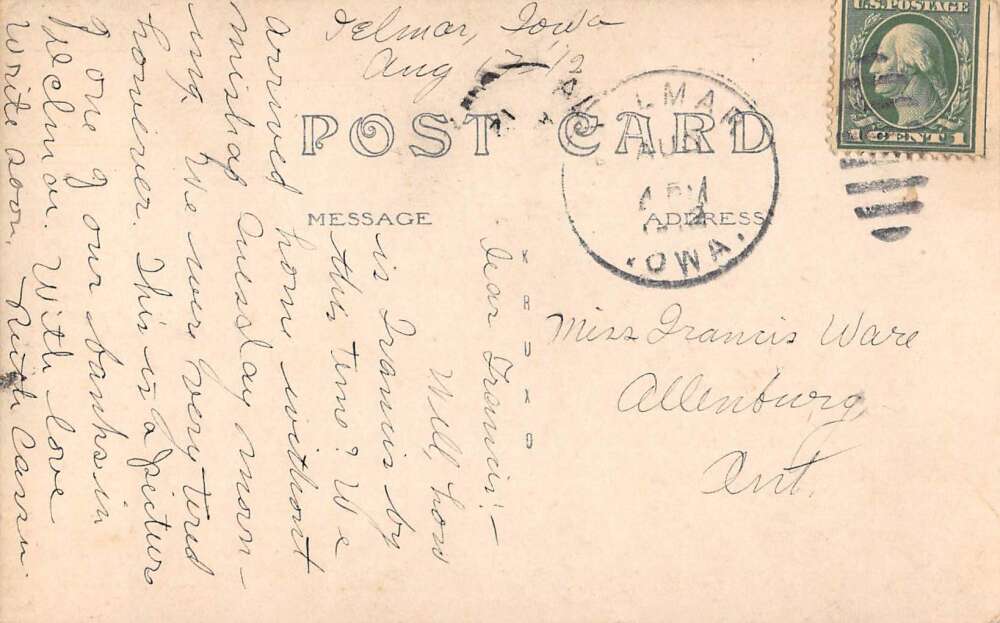 Delmar, Iowa
Aug
U.S. POSTAGE
1 CENT 1
POST CARD
DELMAR
AUG
IOWA.
MESSAGE
ADDRESS
Dear Francis:-
Will, how
is Francis by
this time? We
arrived home without
mishap Tuesday morn-
ing. We were very tired
however. This is a picture
of one of our banks in
Delmar. With love
Write soon. Ruth Cassin.
Miss Francis Ware
Allenburg,
Ont.